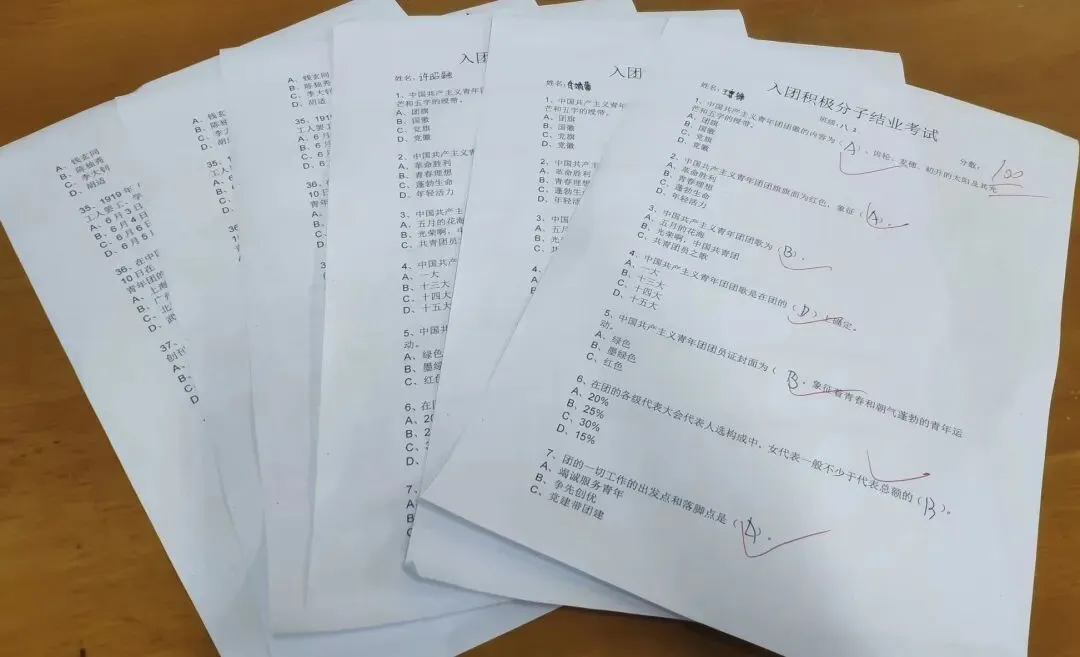 A、钱玄同
B、陈独秀
C、李大钊
D、胡适
35、1919年
工人罢工、学
A、6月3日
B、6月4日
C、6月6日
D、6月5
36、在中国
10日在
青年团的
A、上海
B、广州
C、北
D、武
37、
创在
A、
B、
C、
D
A、钱玄
B、陈独
C、李大
D、胡
35、1
工人
A、6
B、
C、
D、
36、
10
青年
A、
B、
C、
A、钱玄同
B、陈独秀
C、李大钊
D、胡适
35、1919年
工人罢工、
A、6月
B、6月
C、6月
D、6月
36、在
10日
青年
A、
B、
C、
D、
入团
姓名：许昭融
1、中国共产主义青年团
芒和五字的绶带。
A、团旗
B、国徽
C、党旗
D、党徽
2、中国共产主义
A、革命胜利
B、青春理想
C、蓬勃生命
D、年轻活力
3、中国共产
A、五月的花海
B、光荣啊，
C、共青团员
4、中国共产
A、一大
B、十三大
C、十四大
D、十五大
5、中国共
动。
A、绿色
B、墨绿
C、红色
6、在团
A、20
B、2
C、
D、
7、
A
B
C
入团
姓名：
1、中国共产主义青年
芒和五字的绶带。
A、团旗
B、国徽
C、党旗
D、党徽
2、中国共产主义
A、革命胜利
B、青春理想
C、蓬勃生命
D、年轻活力
3、中国
A、五月
B、光
C、共
4、
A、
B、
C、
D、
入团积极分子结业考试
姓名： 班级：八.2 分数： 100
1、中国共产主义青年团团徽的内容为（A）、齿轮、麦穗、初升的太阳及其光
芒和五字的绶带。
A、团旗
B、国徽
C、党旗
D、党徽
2、中国共产主义青年团团旗旗面为红色，象征（A）。
A、革命胜利
B、青春理想
C、蓬勃生命
D、年轻活力
3、中国共产主义青年团团歌为（B）.
A、五月的花海
B、光荣啊，中国共青团
C、共青团员之歌
4、中国共产主义青年团团歌是在团的（D）上确定。
A、一大
B、十三大
C、十四大
D、十五大
5、中国共产主义青年团团员证封面为（B，象征着青春和朝气蓬勃的青年运
动。
A、绿色
B、墨绿色
C、红色
6、在团的各级代表大会代表人选构成中，女代表一般不少于代表总额的（B）。
A、20%
B、25%
C、30%
D、15%
7、团的一切工作的出发点和落脚点是（A）。
A、竭诚服务青年
B、争先创优
C、党建带团建